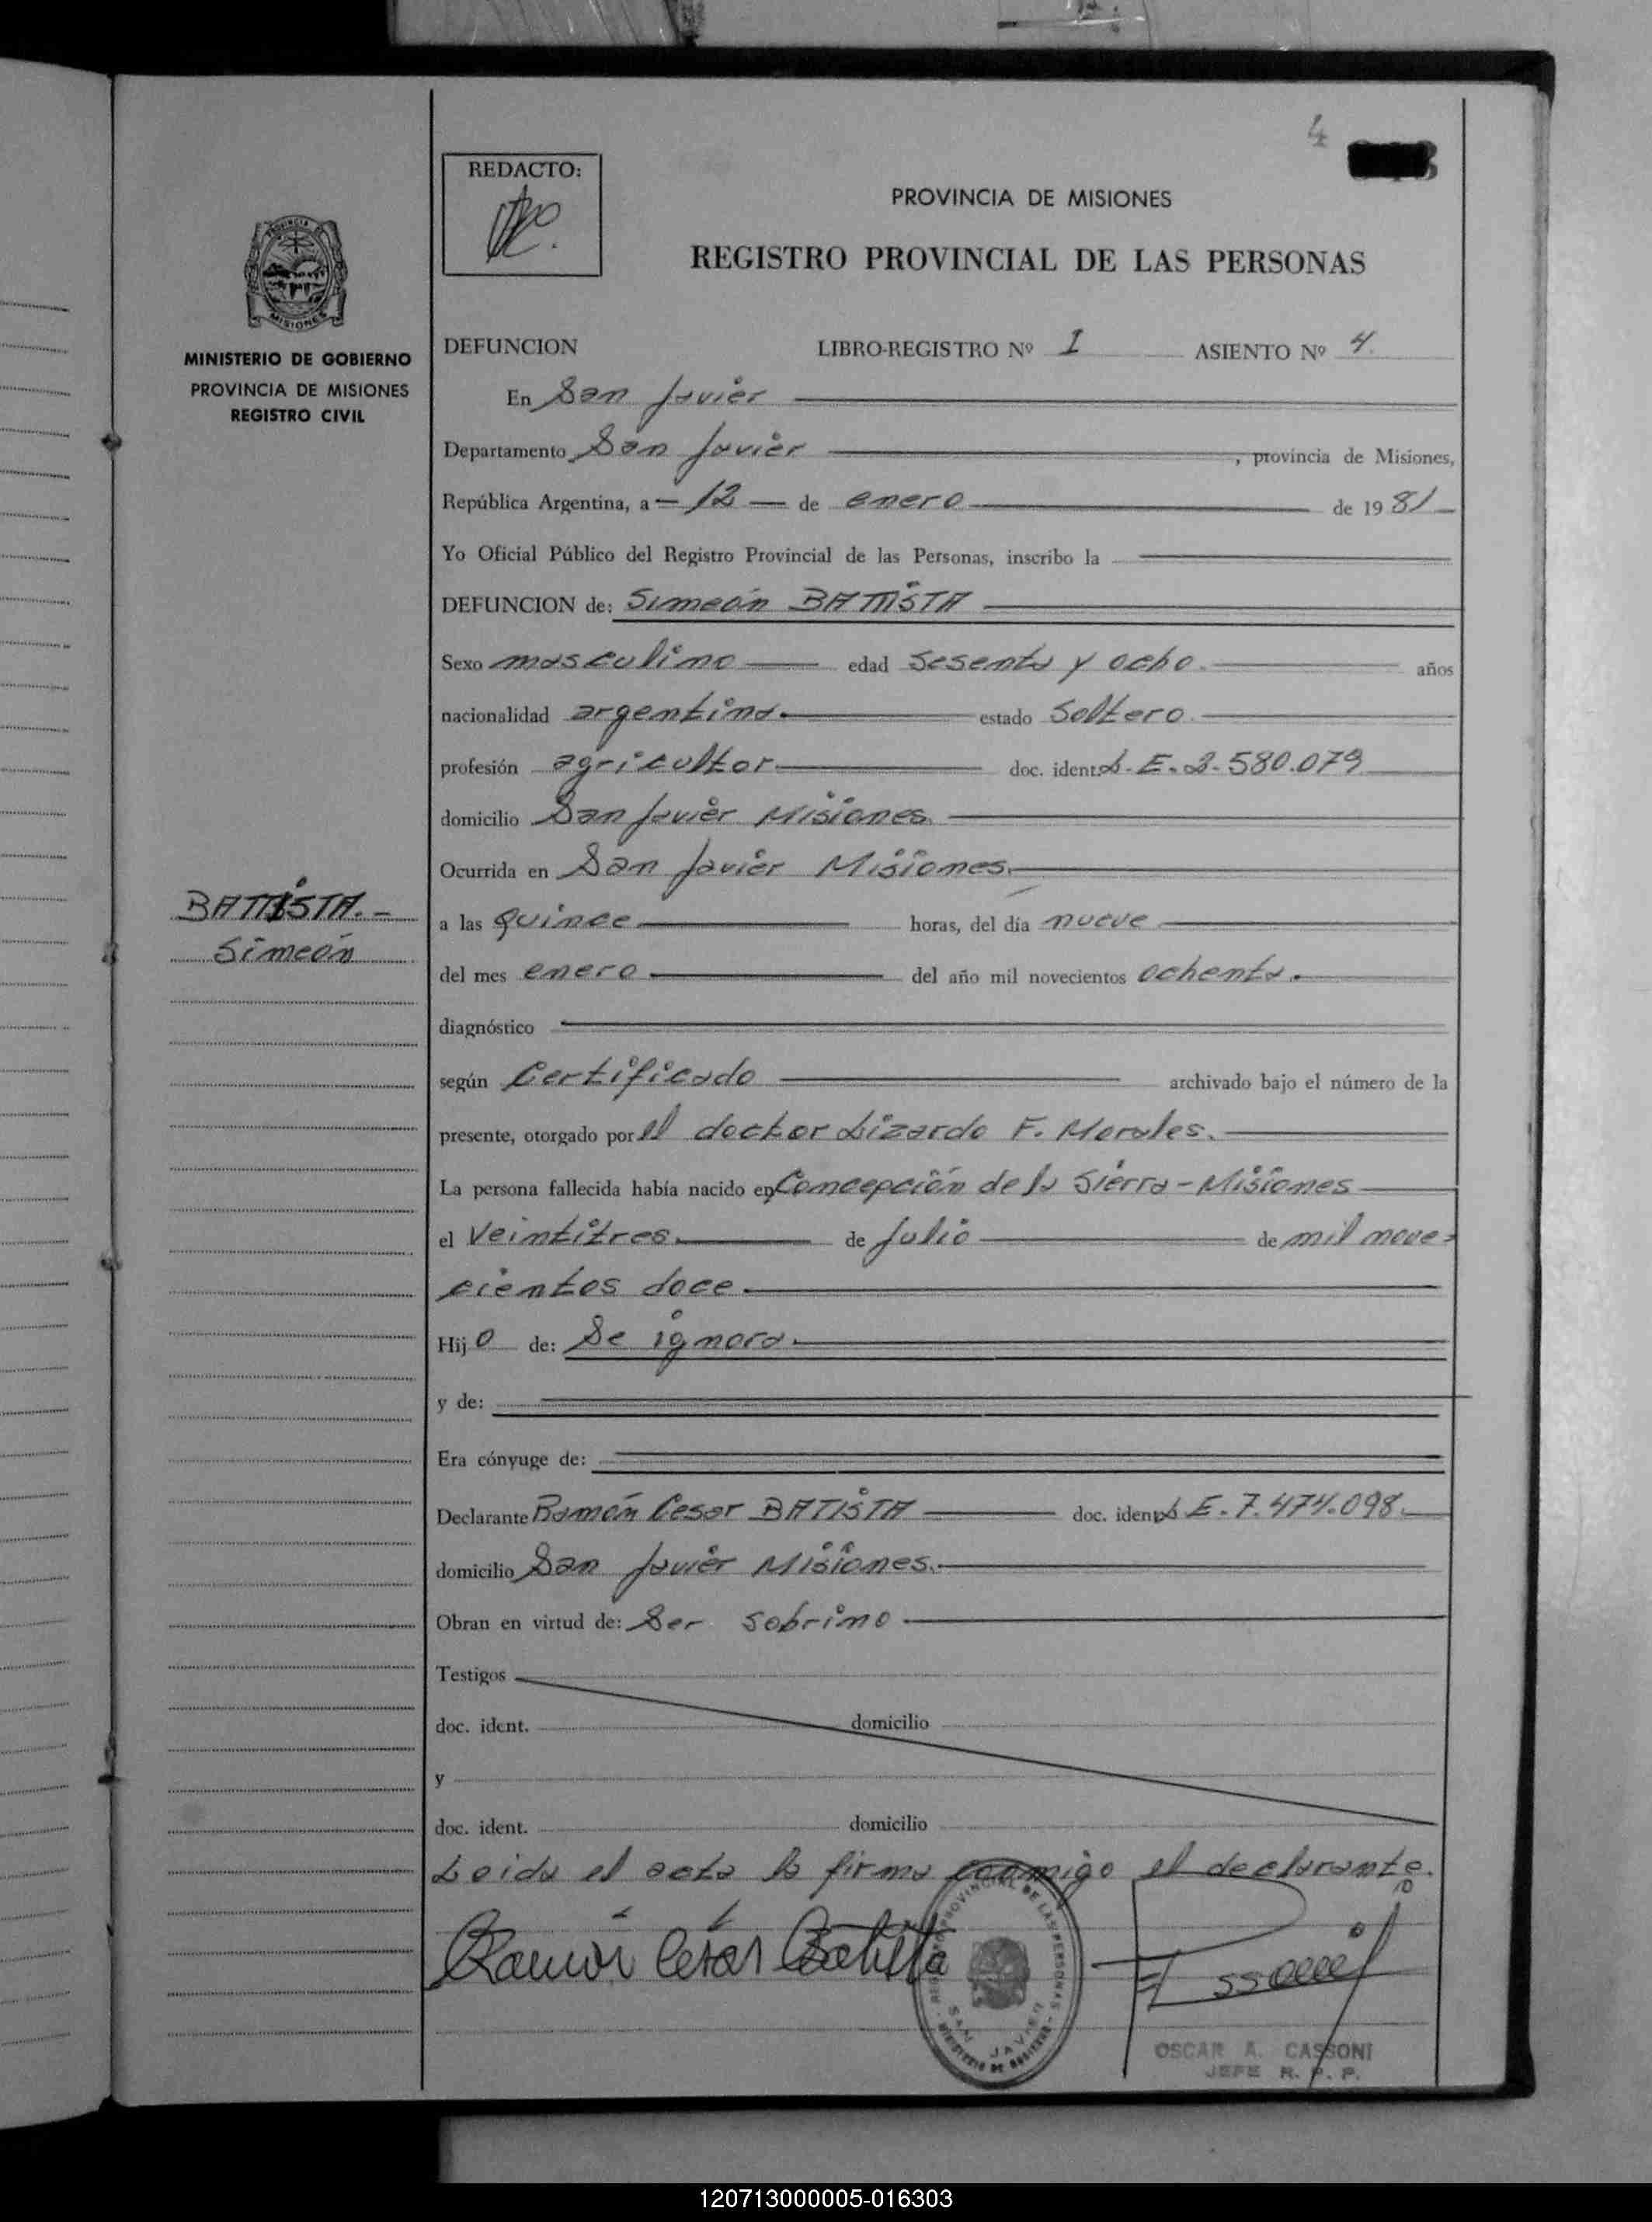 4
REDACTO:
PROVINCIA DE MISIONES
REGISTRO PROVINCIAL DE LAS PERSONAS
PROVINCIA DE
MISIONES
MINISTERIO DE GOBIERNO
PROVINCIA DE MISIONES
REGISTRO CIVIL
DEFUNCION LIBRO-REGISTRO Nº 1 ASIENTO Nº 4.
En San Javier
Departamento San Javier, provincia de Misiones,
República Argentina, a - 12 - de enero de 1981
Yo Oficial Público del Registro Provincial de las Personas, inscribo la
DEFUNCION de: Simeón BATISTA
Sexo masculino edad Sesenta y ocho. años
nacionalidad argentina. estado Soltero.
profesión agricultor doc. ident. L. E. 2.580.079
domicilio San Javier Misiones.
Ocurrida en San Javier Misiones.
BATISTA.-
Simeón
a las quince horas, del día nueve
del mes enero del año mil novecientos ochenta.
diagnóstico
según Certificado archivado bajo el número de la
presente, otorgado por el doctor Lizardo F. Morales.
La persona fallecida había nacido en Concepción de la Sierra - Misiones
el Veintitres. de Julio de mil nove-
cientos doce.
Hijo de: Se ignora.
y de:
Era cónyuge de:
Declarante Ramón Cesar BATISTA doc. ident. L E. 7.474.098.
domicilio San Javier Misiones.
Obran en virtud de: Ser sobrino
Testigos
doc. ident. domicilio
y
doc. ident. domicilio
Leida el acta la firma conmigo el declarante.
Ramón César Batista
REGISTRO PROVINCIAL DE LAS PERSONAS
SAN JAVIER
MINISTERIO DE GOBIERNO
OSCAR A. CASSONI
JEFE R. P. P.
120713000005-016303